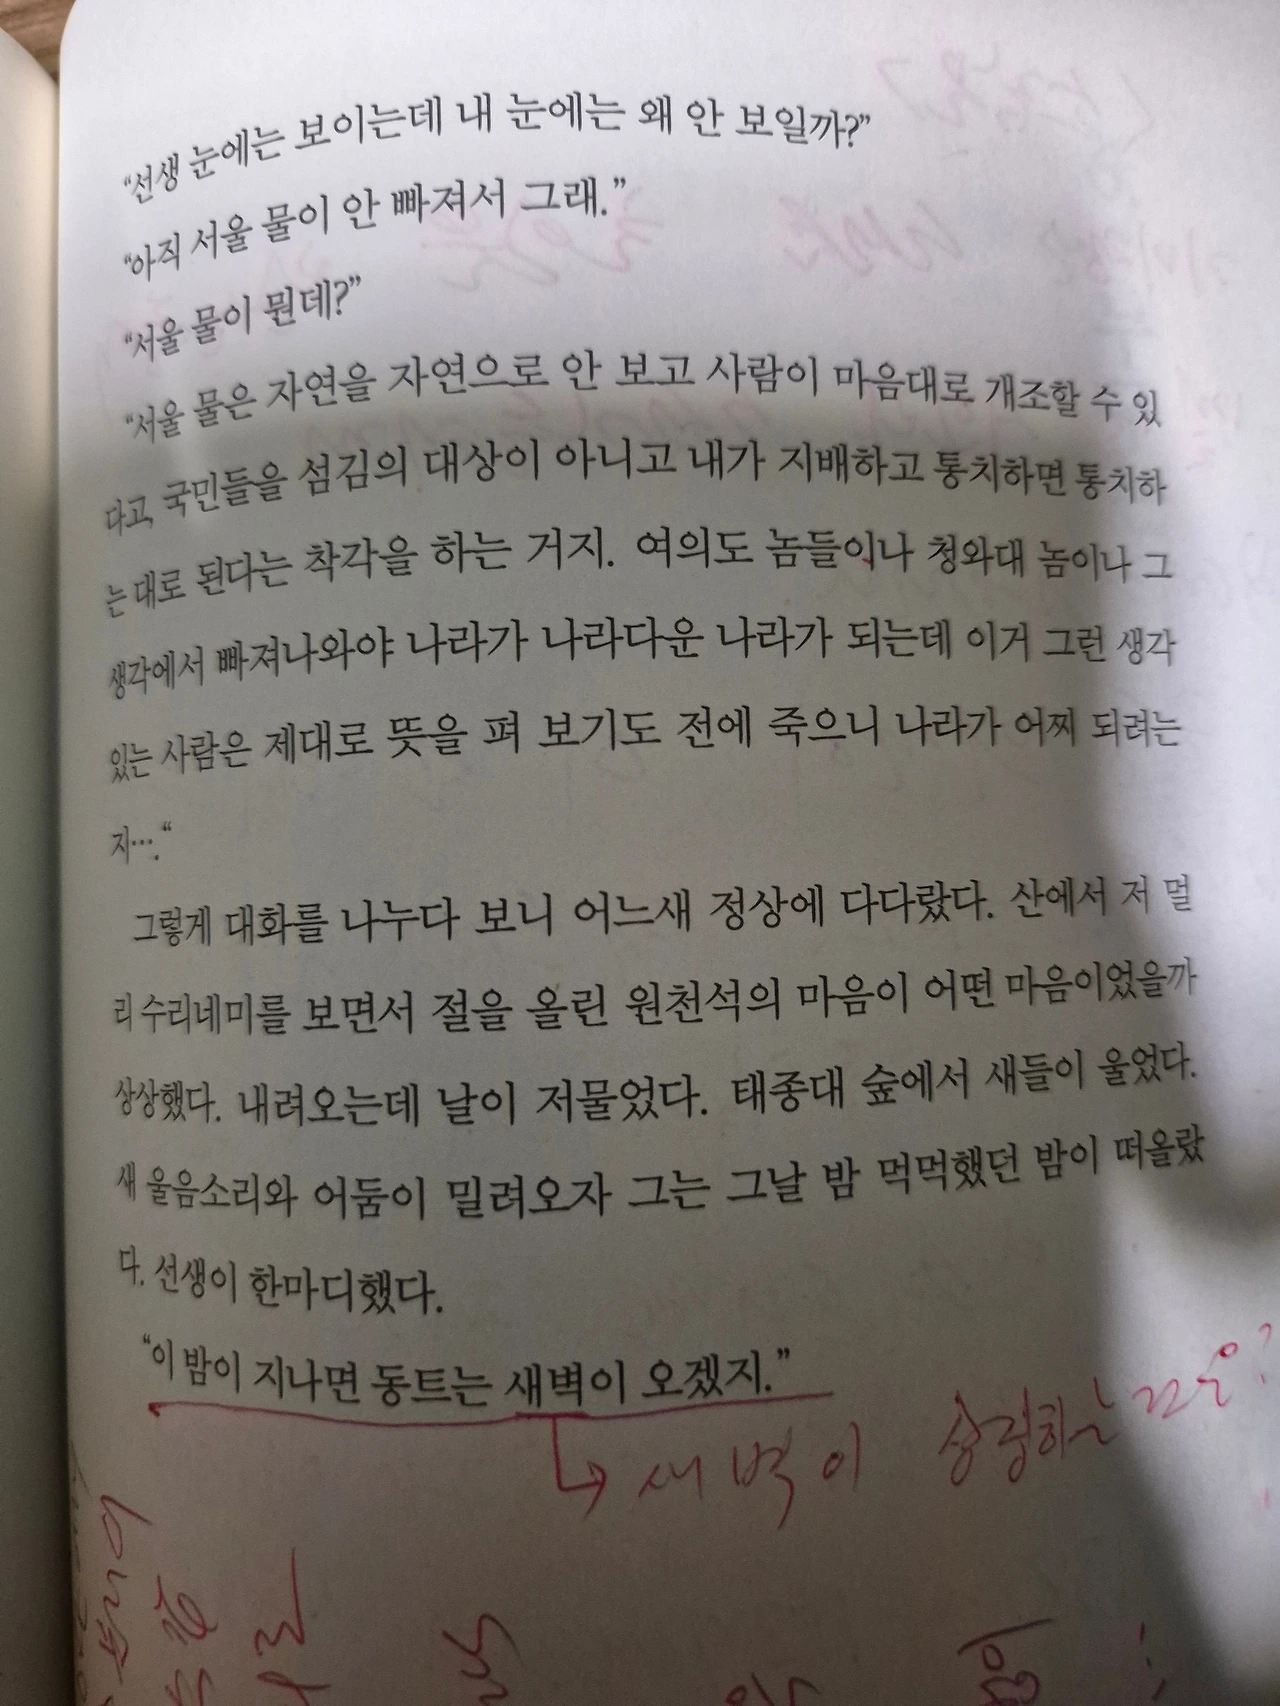 “선생 눈에는 보이는데 내 눈에는 왜 안 보일까?”
“아직 서울 물이 안 빠져서 그래.”
“서울 물이 뭔데?”
“서울 물은 자연을 자연으로 안 보고 사람이 마음대로 개조할 수 있
다고, 국민들을 섬김의 대상이 아니고 내가 지배하고 통치하면 통치하
는 대로 된다는 착각을 하는 거지. 여의도 놈들이나 청와대 놈이나 그
생각에서 빠져나와야 나라가 나라다운 나라가 되는데 이거 그런 생각
있는 사람은 제대로 뜻을 펴 보기도 전에 죽으니 나라가 어찌 되려는
지….“
그렇게 대화를 나누다 보니 어느새 정상에 다다랐다. 산에서 저 멀
리 수리네미를 보면서 절을 올린 원천석의 마음이 어떤 마음이었을까
상상했다. 내려오는데 날이 저물었다. 태종대 숲에서 새들이 울었다.
새 울음소리와 어둠이 밀려오자 그는 그날 밤 먹먹했던 밤이 떠올랐
다. 선생이 한마디했다.
“이 밤이 지나면 동트는 새벽이 오겠지.”
새벽이 상징하는 것은?